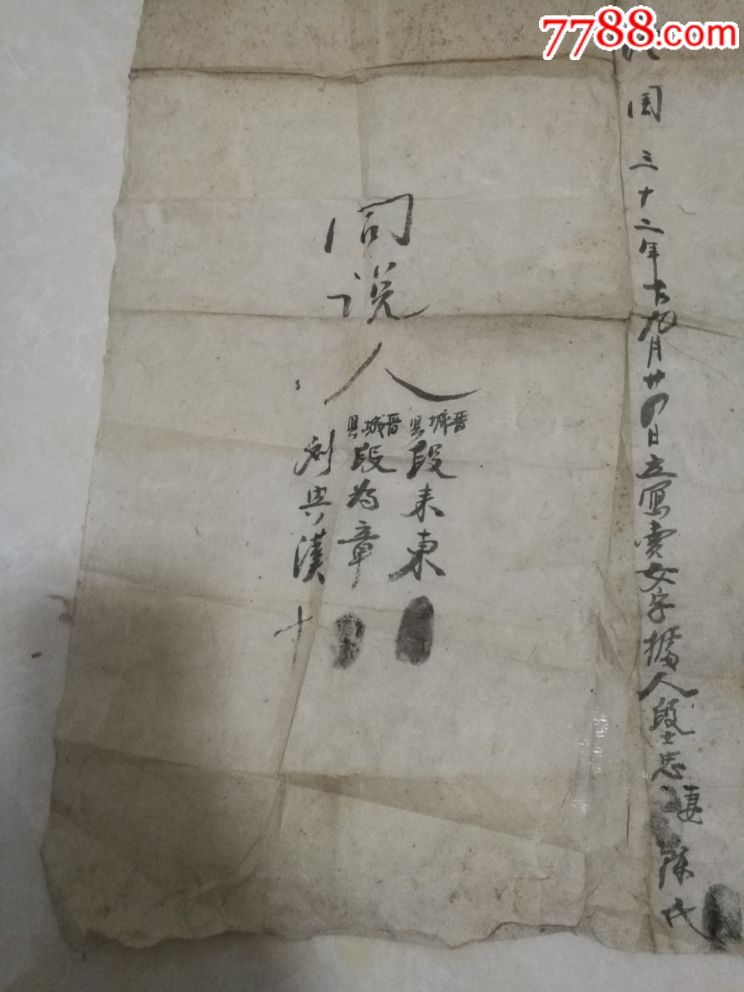 7788.com
国 三十二年 月廿四日立写卖女字據人段 忠妻 陈氏
同说人
晋城县 段来東
晋城县 段为章
刘兴漢 十